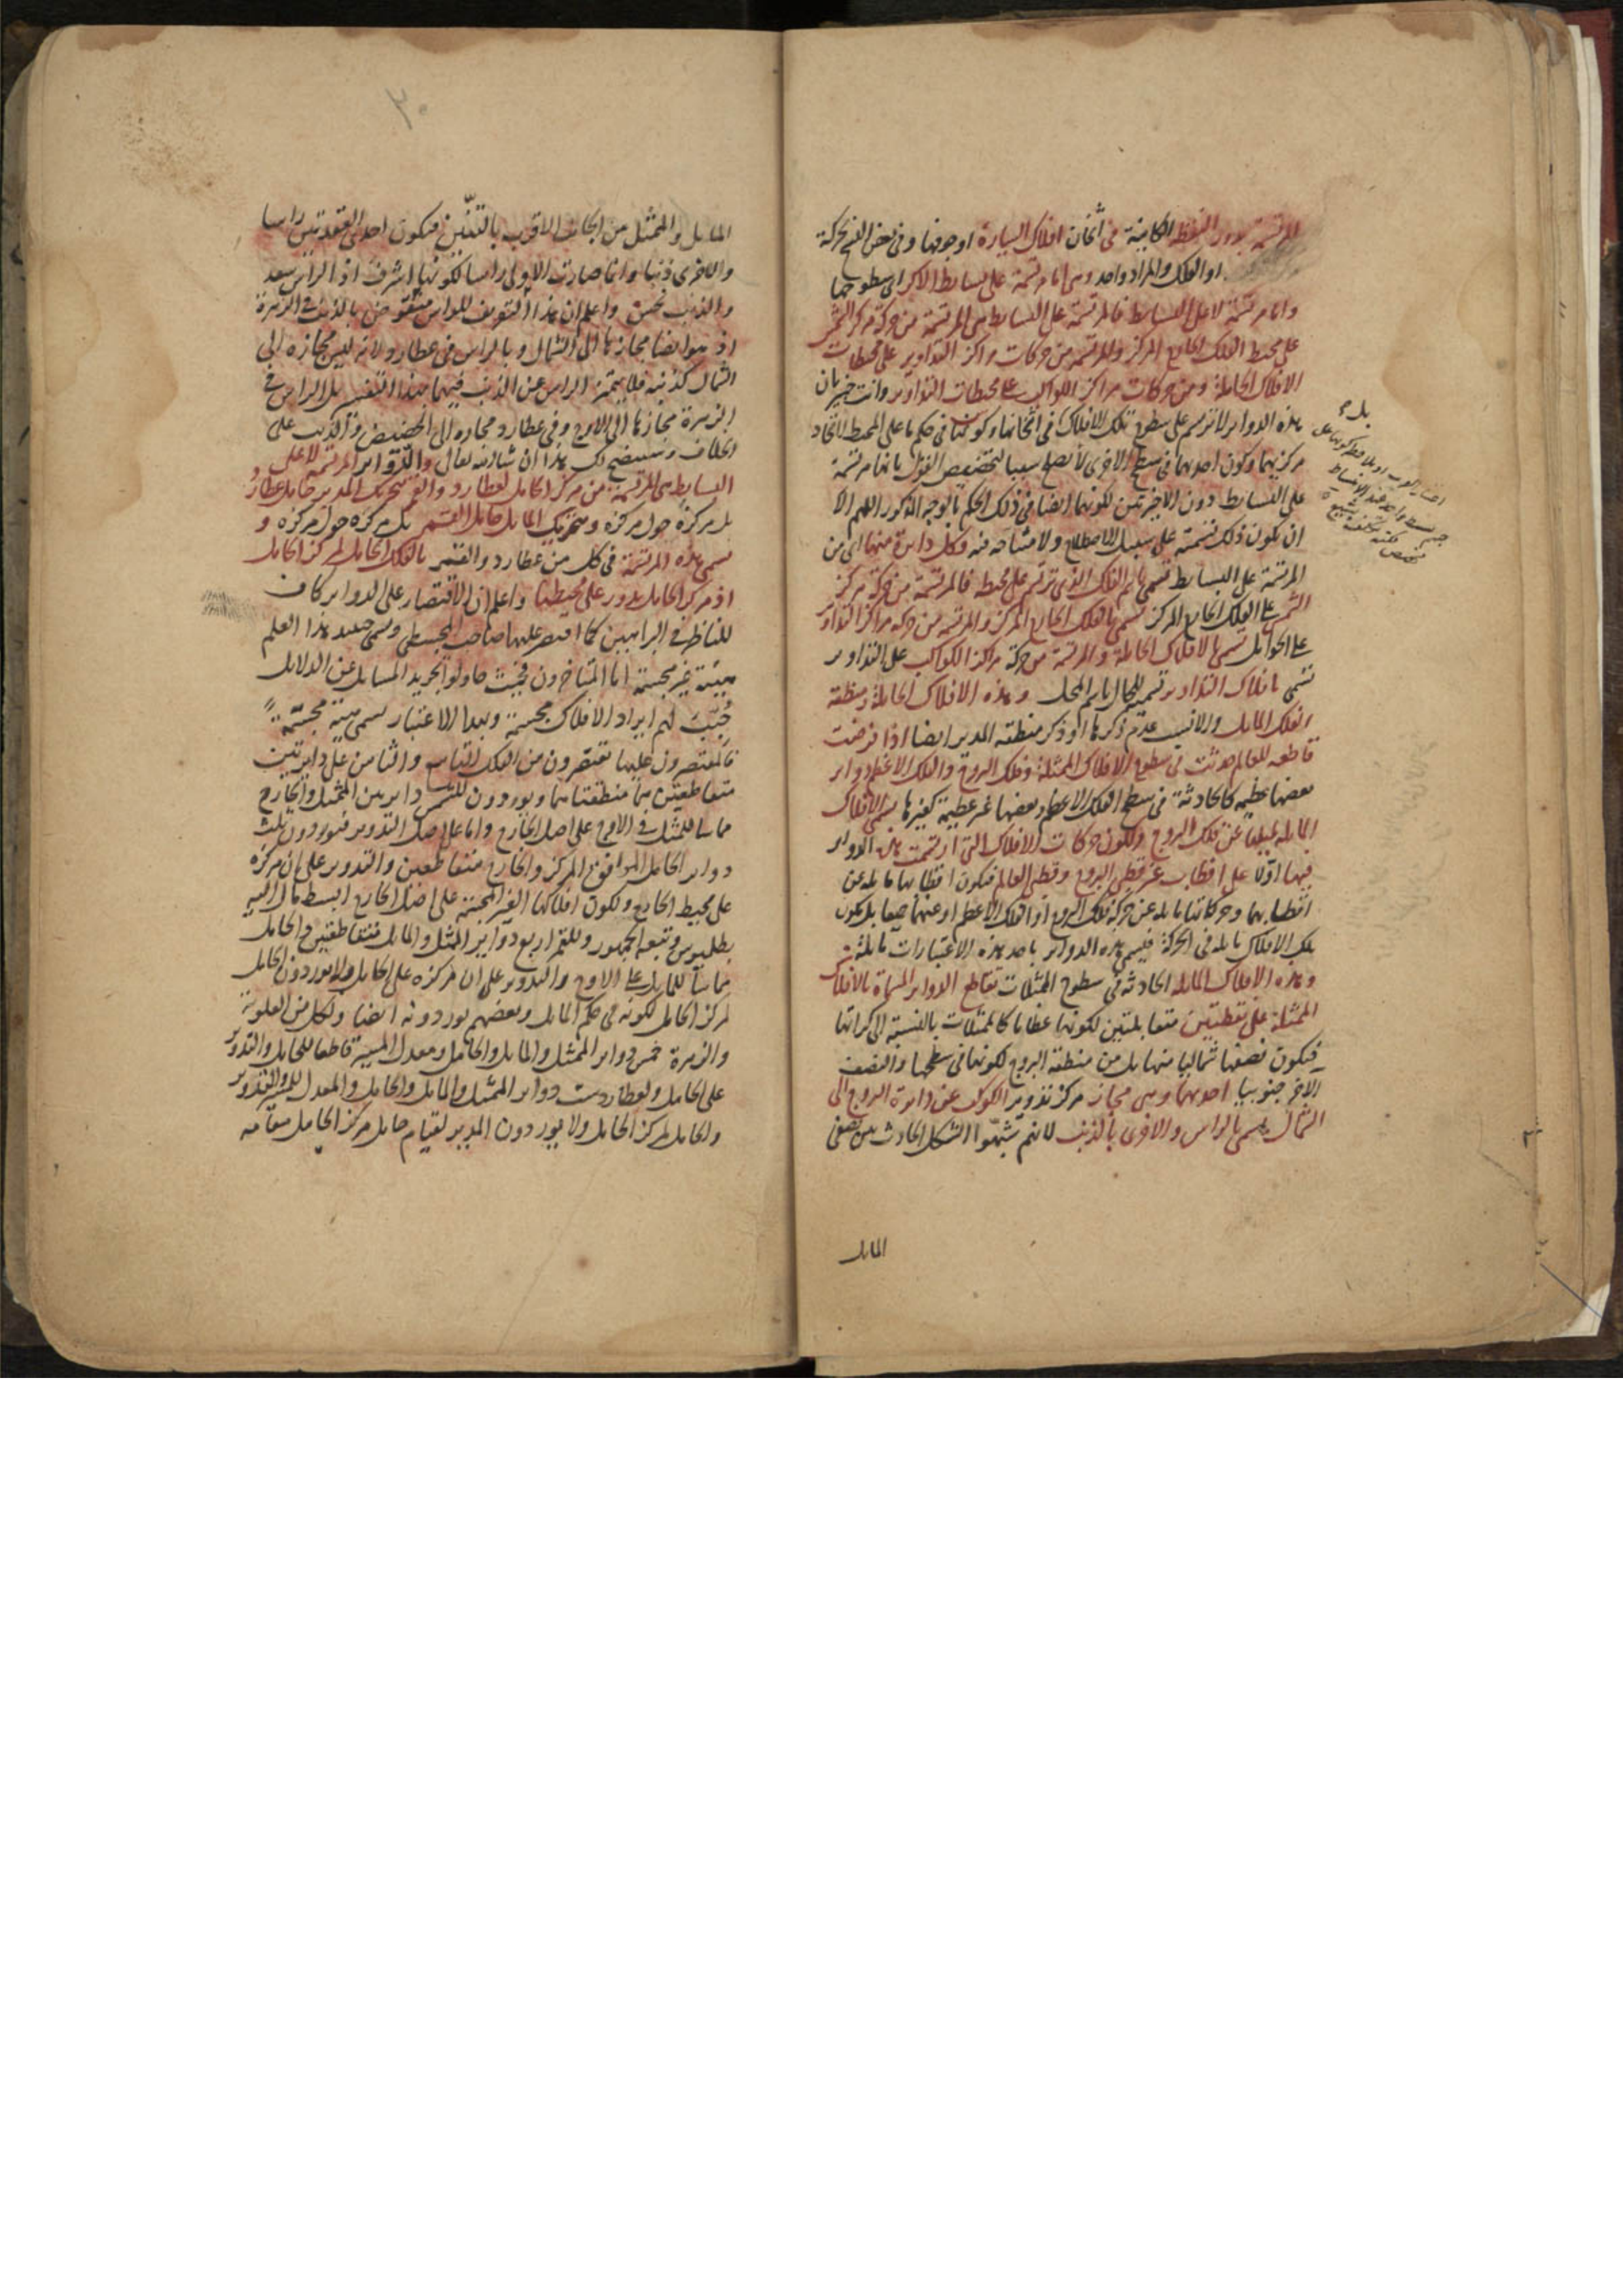 المرتسمة بدور النقطة الكاينة فى اثخان افلاك السيارة او جوفها وفى بعض النسخ بحركة
او الفلك والمراد واحد وهى اما مرتسمة على بسايط الاكر اى سطوحها
واما مرتسمة لا على البسايط فالمرتسمة على البسايط هى المرتسمة من حركة مركز الشمس
على محيط الفلك الخارج المركز والمرتسمة من حركات مراكز التداوير على محيطات
الافلاك الحاملة ومن حركات مراكز الكواكب على محيطات التداوير وانت خبير بان
هذه الدواير لا ترتسم على سطوح تلك الافلاك فى اثخانها وكونها فى حكم ما على المحيط لاتحاد
مركزيهما وكون احدهما فى سطح الاخرى لا يصلح سببا لتخصيص القول بانها مرتسمة
على البسايط دون الاخيرتين لكونهما ايضا فى ذلك الحكم بالوجه المذكور اللهم الا
ان يكون ذلك تسمية على سبيل الاصطلاح ولا مشاحة فيه وكل دايرة منها اى من
المرتسمة على البسايط تسمى باسم الفلك الذى ترتسم على محيطه فالمرتسمة من حركة مركز
الشمس على الفلك الخارج المركز تسمى بالفلك الخارج المركز والمرتسمة من حركة مراكز التداوير
على الحوامل تسمى بالافلاك الحاملة والمرتسمة من حركة مراكز الكواكب على التداوير
تسمى بافلاك التداوير تسمية للحال باسم المحل وهذه الافلاك الحاملة ومنطقة
الفلك المايل والانسب عدم ذكرها او ذكر منطقة المدير ايضا اذا فرضت
قاطعة للعالم حدثت فى سطوح الافلاك الممثلة وفلك البروج والفلك الاعظم دواير
بعضها عظيمة كالحادثة فى سطح الفلك الاعظم وبعضها غير عظيمة كغيرها تسمى الافلاك
المايلة لميلها عن فلك البروج ولكون حركات الافلاك التى ارتسمت هذه الدواير
فيها اولا على اقطاب غير قطبى البروج وقطبى العالم فيكون اقطابها مايلة عن
اقطابهما وحركاتها مايلة عن حركة فلك البروج او الفلك الاعظم او عنهما جميعا بل يكون
تلك الافلاك مايلة فى الحركة فليسمى هذه الدواير باحد هذه الاعتبارات مايلة
وهذه الافلاك المايلة الحادثة فى سطوح الممثلات تقاطع الدواير المسماة بالافلاك
الممثلة على نقطتين متقابلتين لكونها عظاما كالممثلات بالنسبة الى كراتها
فيكون نصفها شماليا منها بل من منطقة البروج لكونهما فى سطحها والنصف
الاخر جنوبيا احديهما وهى مجاز مركز تدوير الكوكب عن دايرة البروج الى
الشمال يسمى بالراس والاخرى بالذنب لانهم شبهوا الشكل الحادث بين نصفى
المايل
٣٠
المايل والممثل من الجانب الاقرب بالتنين فيكون احدى العقدتين راسا
والاخرى ذنبا وانما صارت الاولى راسا لكونها اشرف اذ الراس سعد
والذنب نحس واعلم ان هذا التعريف للراس منقوض بالذنب فى الزهرة
اذ هو ايضا مجازها الى الشمال وبالراس فى عطارد لانه ليس مجازه الى
الشمال كذنبه فلا يتميز الراس عن الذنب فيهما بهذا التفسير بل الراس فى
الزهرة مجازها الى الاوج وفى عطارد مجازه الى الحضيض والذنب على
الخلاف وسيتضح لك هذا ان شاء الله تعالى والدواير المرتسمة لا على
البسايط هى المرتسمة من مركز الحامل لعطارد والقمر بتحريك المدير حامل عطارد
بل مركزه حول مركزه وبتحريك المايل حامل القمر بل مركزه حول مركزه و
تسمى هذه المرتسمة فى كل من عطارد والقمر بالفلك الحامل لمركز الحامل
اذ مركز الحامل يدور على محيطها واعلم ان الاقتصار على الدواير كاف
للناظر فى البراهين كما اقتصر عليها صاحب المجسطى ويسمى حينئذ هذا العلم
هيئة غير مجسمة اما المتاخرون فحيث حاولوا تجريد المسايل عن الدلايل
وجب لهم ايراد الافلاك مجسمة وبهذا الاعتبار يسمى هيئة مجسمة
فالمقتصرون عليها يقتصرون من الفلك التاسع والثامن على دايرتين
متقاطعتين هما منطقتاهما ويوردون للشمس دايرتين الممثل والخارج
مماسا للممثل فى الاوج على اصل الخارج واما على اصل التدوير فيوردون ثلث
دواير الحامل الموافق المركز والخارج متقاطعين والتدوير على ان مركزه
على محيط الخارج ولكون افلاكها الغير المجسمة على اصل الخارج ابسط مال اليه
بطلميوس وتبعه الجمهور وللقمر اربع دواير الممثل والمايل متقاطعين والحامل
مماسا للمايل على الاوج والتدوير على ان مركزه على الحامل ولا يوردون الحامل
لمركز الحامل لكونه فى حكم المايل وبعضهم يوردونه ايضا ولكل من العلوية
والزهرة خمس دواير الممثل والمايل والحامل ومعدل المسير قاطعا للحامل والتدوير
على الحامل ولعطارد ست دواير الممثل والمايل والحامل والمعدل للمسير والتدوير
والحامل لمركز الحامل ولا يوردون المدير لقيام حامل مركز الحامل مقامه